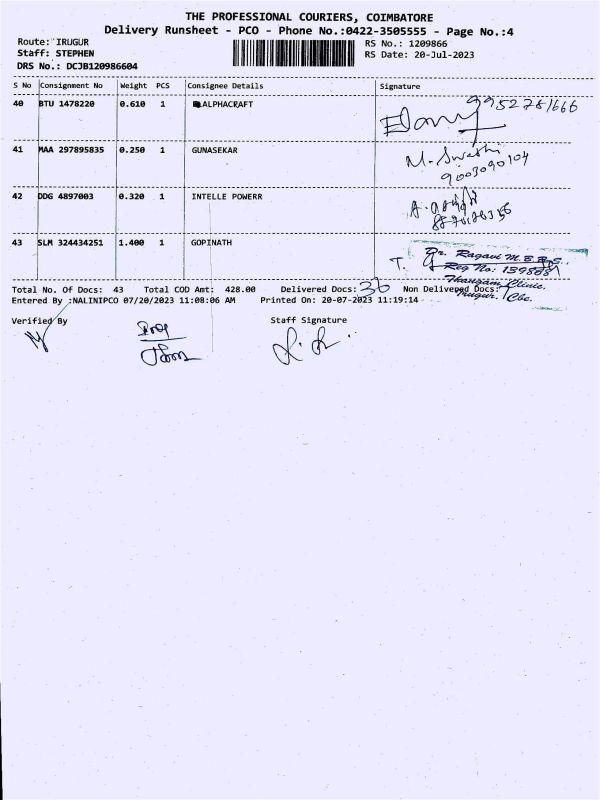 THE PROFESSIONAL COURIERS, COIMBATORE
Delivery Runsheet - PCO - Phone No.:0422-3505555 - Page No.:4
Route: IRUGUR
RS No.: 1209866
Staff: STEPHEN
RS Date: 20-Jul-2023
DRS No.: DCJB120986604
S No Consignment No Weight PCS Consignee Details Signature
40 BTU 1478220 0.610 1 ALPHACRAFT
41 MAA 297895835 0.250 1 GUNASEKAR
M. Swathi
9003090104
42 DDG 4897003 0.320 1 INTELLE POWERR
43 SLM 324434251 1.400 1 GOPINATH
T. Dr. Ragavi M.B.B.S.,
Reg No: 139888
Thangam Clinic,
Irugur, Cbe.
Total No. Of Docs: 43 Total COD Amt: 428.00 Delivered Docs: 36 Non Delivered Docs:
Entered By :NALINIPCO 07/20/2023 11:08:06 AM Printed On: 20-07-2023 11:19:14
Verified By Staff Signature